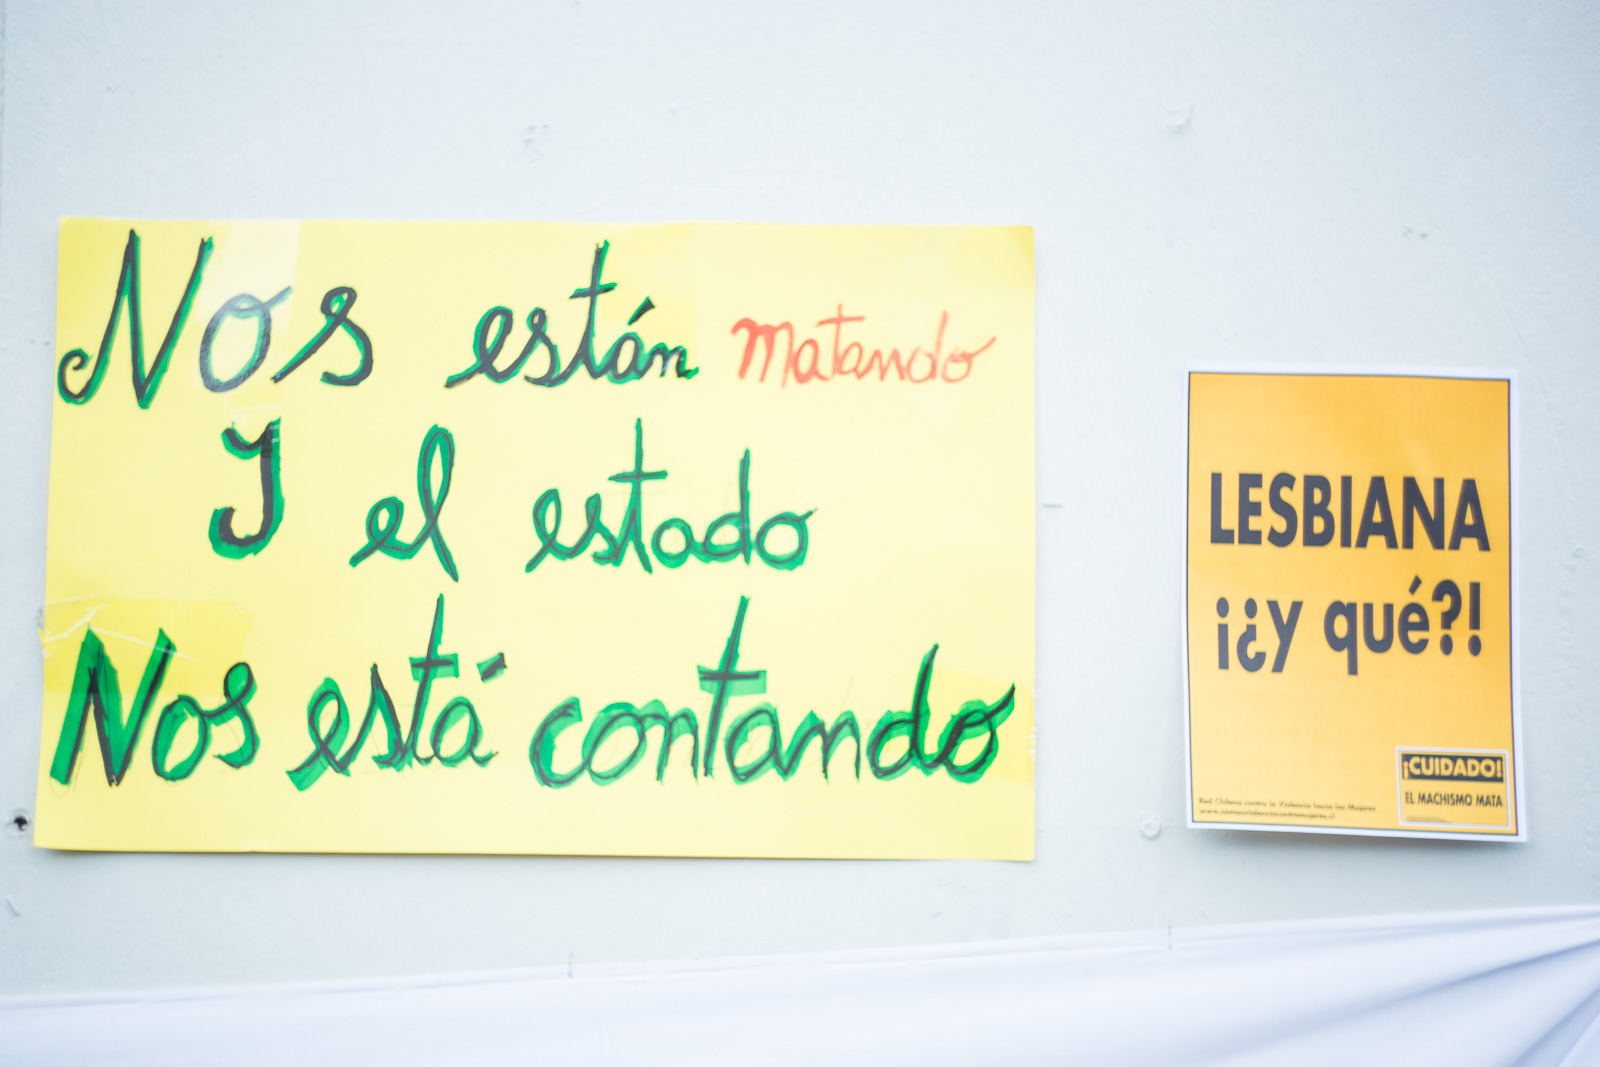 Nos están matando
Y el estado
Nos está contando
LESBIANA
¡¿y qué?!
¡CUIDADO!
EL MACHISMO MATA
Red Chilena contra la Violencia hacia las Mujeres